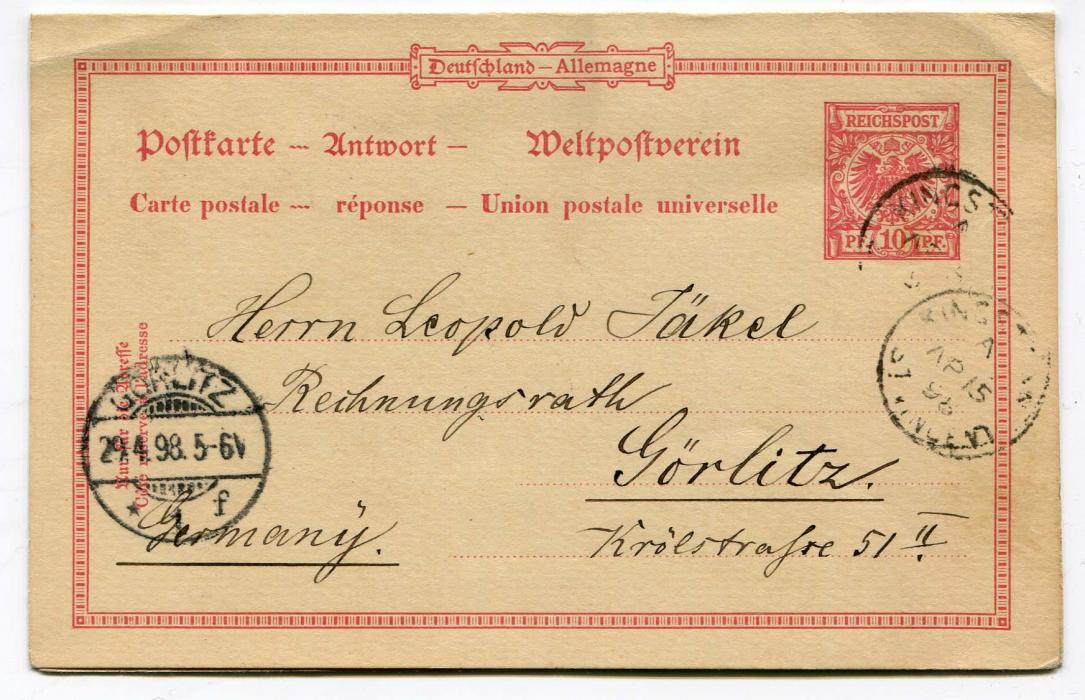 Deutschland – Allemagne
Postkarte — Antwort — Weltpostverein
Carte postale — réponse — Union postale universelle
REICHSPOST
PF. 10 PF.
KINGST
KINGST
A
AP 15
98
ST VINCENT
Herrn Leopold Jäkel
Rechnungsrath
Görlitz.
Krölstrasse 51 II
Germany.
Nur für die Adresse
Côté réservé à l'adresse
GÖRLITZ
29.4.98. 5-6N
* 1 f